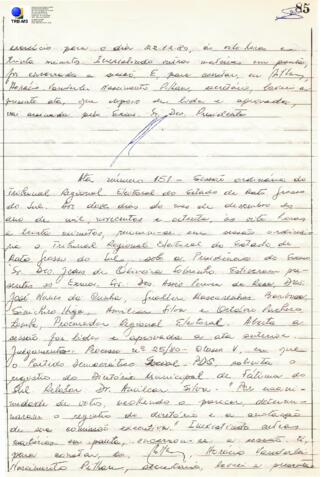 TRE-MS
85
exercício para o dia 22.12.80, às oito horas e
trinta minutos. Inexistindo outras matérias em pauta,
foi encerrada a sessão. E, para constar, eu
secretário, lavrei a
presente ata, que depois de lida e aprovada,
vai assinada pelo Exmo. Sr. Des. Presidente
Ata número 151 - Sessão ordinária do
Tribunal Regional Eleitoral do Estado de Mato Grosso
do Sul. Aos doze dias do mês de dezembro do
ano de mil novecentos e oitenta, às oito horas
e trinta minutos, reuniu-se em sessão ordiná-
ria o Tribunal Regional Eleitoral do Estado de
Mato Grosso do Sul, sob a Presidência do Exmo
Sr. Des. Jesus de Oliveira Sobrinho. Estiveram pre-
sentes os Exmos. Srs. Des.
José Nunes da Cunha,
Amilcar Silva e
Procurador Regional Eleitoral. Aberta a
sessão foi lida e aprovada a ata anterior.
Julgamento: Processo nº 25/80 - Classe V, em que
o Partido Democrático Social, PDS, solicita
registro do Diretório Municipal de Fátima do
Sul. Relator Dr. Amilcar Silva. "Por unani-
midade de votos, acolhendo o parecer, determi-
naram o registro do diretório e a anotação
de sua comissão executiva." Inexistindo outras
matérias em pauta, encerrou-se a sessão. E,
para constar, eu, Horácio
Nascimento secretário, lavrei a presente